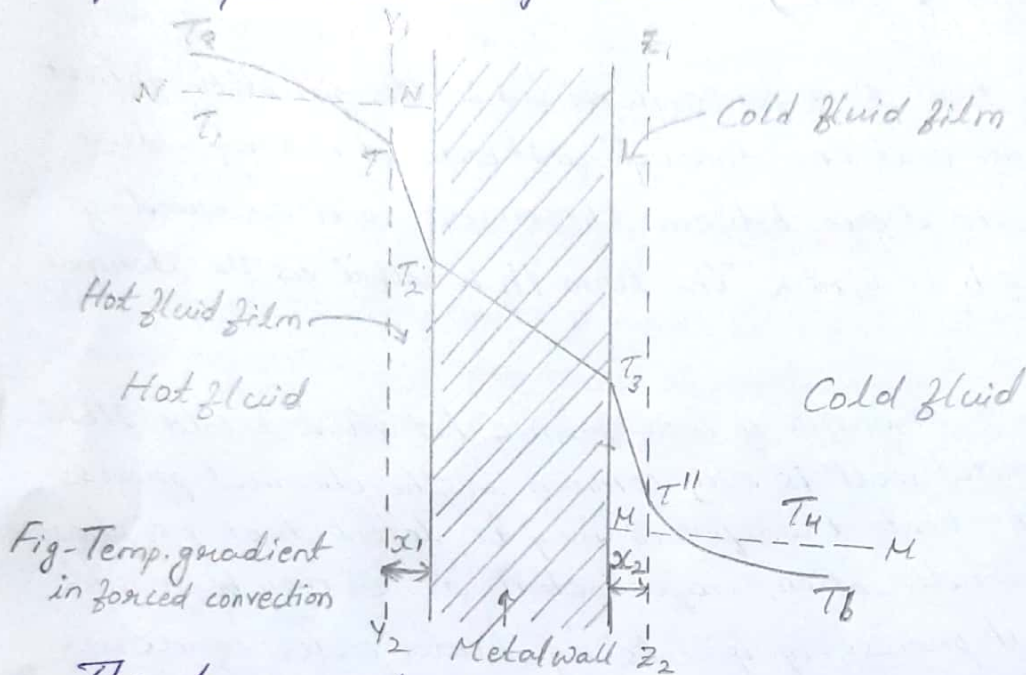 Y1
Ta
Z1
N N
T1
Cold fluid film
T'
T2
Hot fluid film
T3
Hot fluid
Cold fluid
T"
M T4 M
Fig-Temp.gradient
in forced convection
x1
x2
Tb
Y2 Metal wall Z2